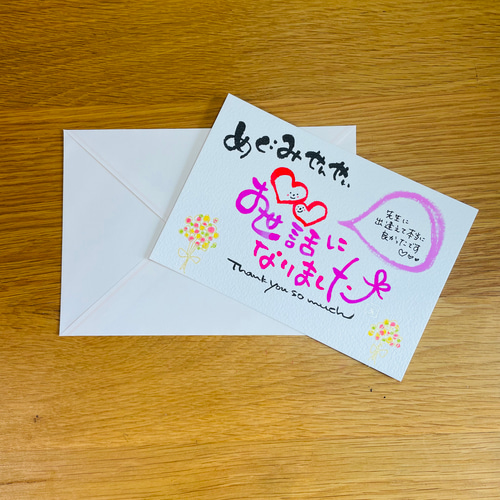 めぐみせんせい
お世話に
なりました
Thank you so much
先生に
出逢えて本当に
良かったです